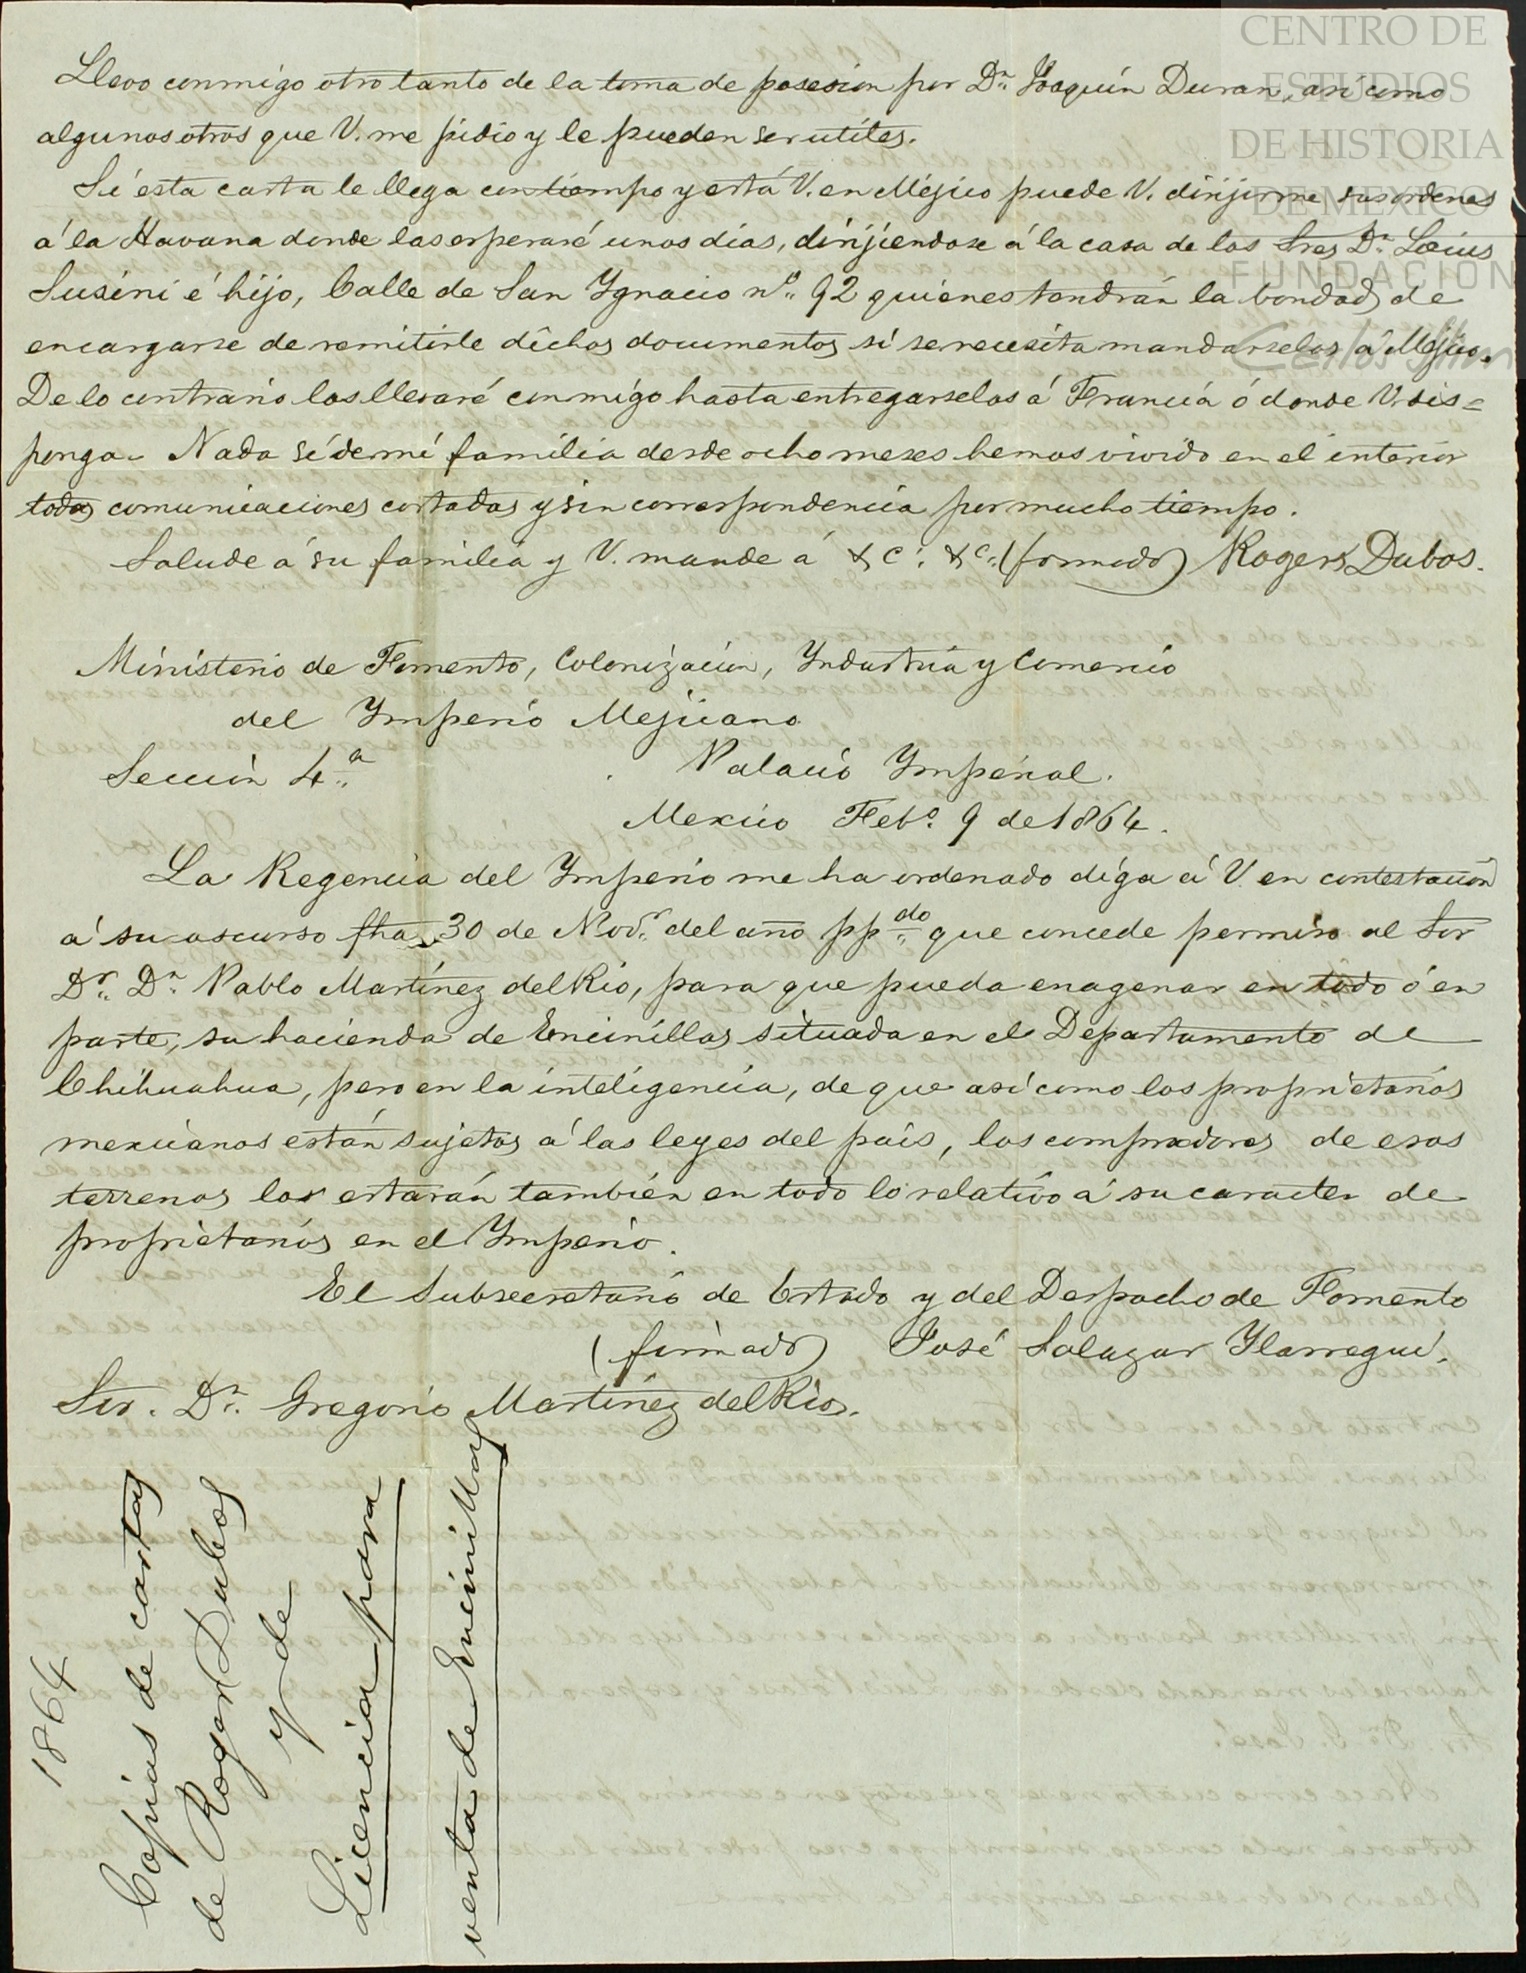 Llevo conmigo otro tanto de la toma de posesion por Dn. Joaquín Duran, asi como
algunos otros que V. me pidio y le pueden ser utiles.
Si esta carta le llega con tiempo y está V. en Méjico puede V. dirijirme sus ordenes
á la Havana donde las esperaré unos dias, dirijiendose á la casa de los Sres Dn. Louis
Susini é hijo, Calle de San Ygnacio no. 92 quienes tendrán la bondad de
encargarse de remitirle dichos documentos si se necesita mandarselos á Mejico.
De lo contrario los llevaré conmigo hasta entregarselos á Francia ó donde V. dis=
ponga. Nada sé de mi familia desde ocho meses hemos vivido en el interior
todas comunicaciones cortadas y sin correspondencia por mucho tiempo.
Salude á su familia y V. mande á &c. &c. (firmado) Roger Dubos.
Ministerio de Fomento, Colonizacion, Yndustria y Comercio
del Ymperio Mejicano
Seccion 4.a
Palacio Ymperial.
Mexico Febo. 9 de 1864.
La Regencia del Ymperio me ha ordenado diga á V. en contestacion
á su ocurso fha 30 de Novr. del año ppdo. que concede permiso al Sor
Dr. Dn. Pablo Martínez del Rio, para que pueda enagenar en todo ó en
parte, su hacienda de Encinillas situada en el Departamento de
Chihuahua, pero en la inteligencia, de que asi como los proprietarios
mexicanos están sujetos á las leyes del país, los compradores de esos
terrenos los estarán también en todo lo relativo á su caracter de
proprietarios en el Ymperio.
El Subsecretario de Estado y del Despacho de Fomento
(firmado) José Salazar Ylarregui.
Sor. Dn. Gregorio Martínez del Rio.
1864
Copias de cartas
de Roger Dubos
y de
Licencia para
venta de Encinillas
CENTRO DE
ESTUDIOS
DE HISTORIA
DE MEXICO
FUNDACIÓN
Carlos Slim